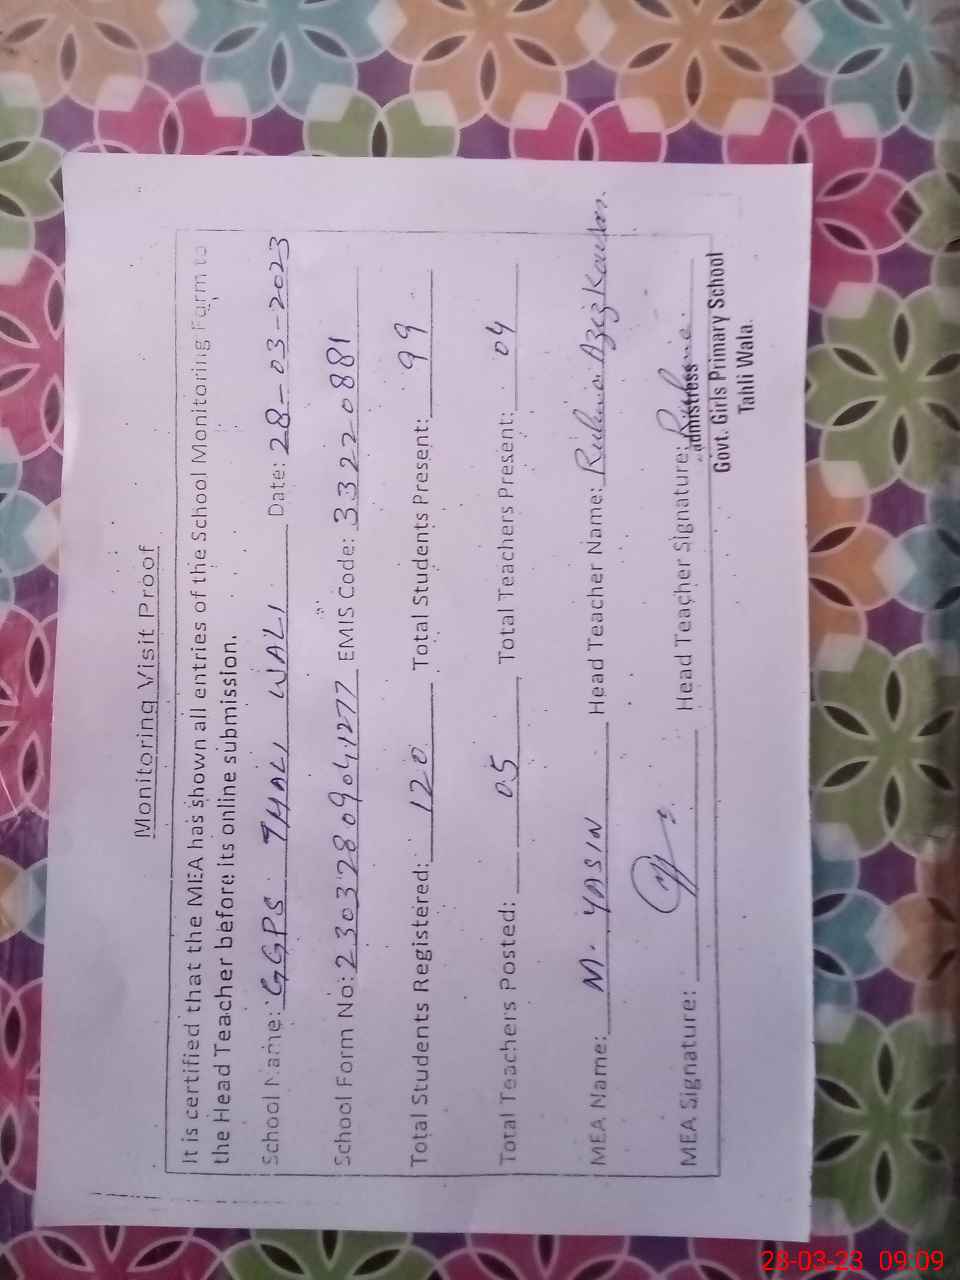 Monitoring Visit Proof
It is certified that the MEA has shown all entries of the School Monitoring Form to
the Head Teacher before its online submission.
School Name: GGPS THALI WALI Date: 28-03-2023
School Form No: 23032809041277 EMIS Code: 33220881
Total Students Registered: 120 Total Students Present: 99
Total Teachers Posted: 05 Total Teachers Present: 04
MEA Name: M. YASIN Head Teacher Name: Kausar.
MEA Signature: Head Teacher Signature:
admistress
Govt. Girls Primary School
Tahli Wala.
28-03-23 09:09